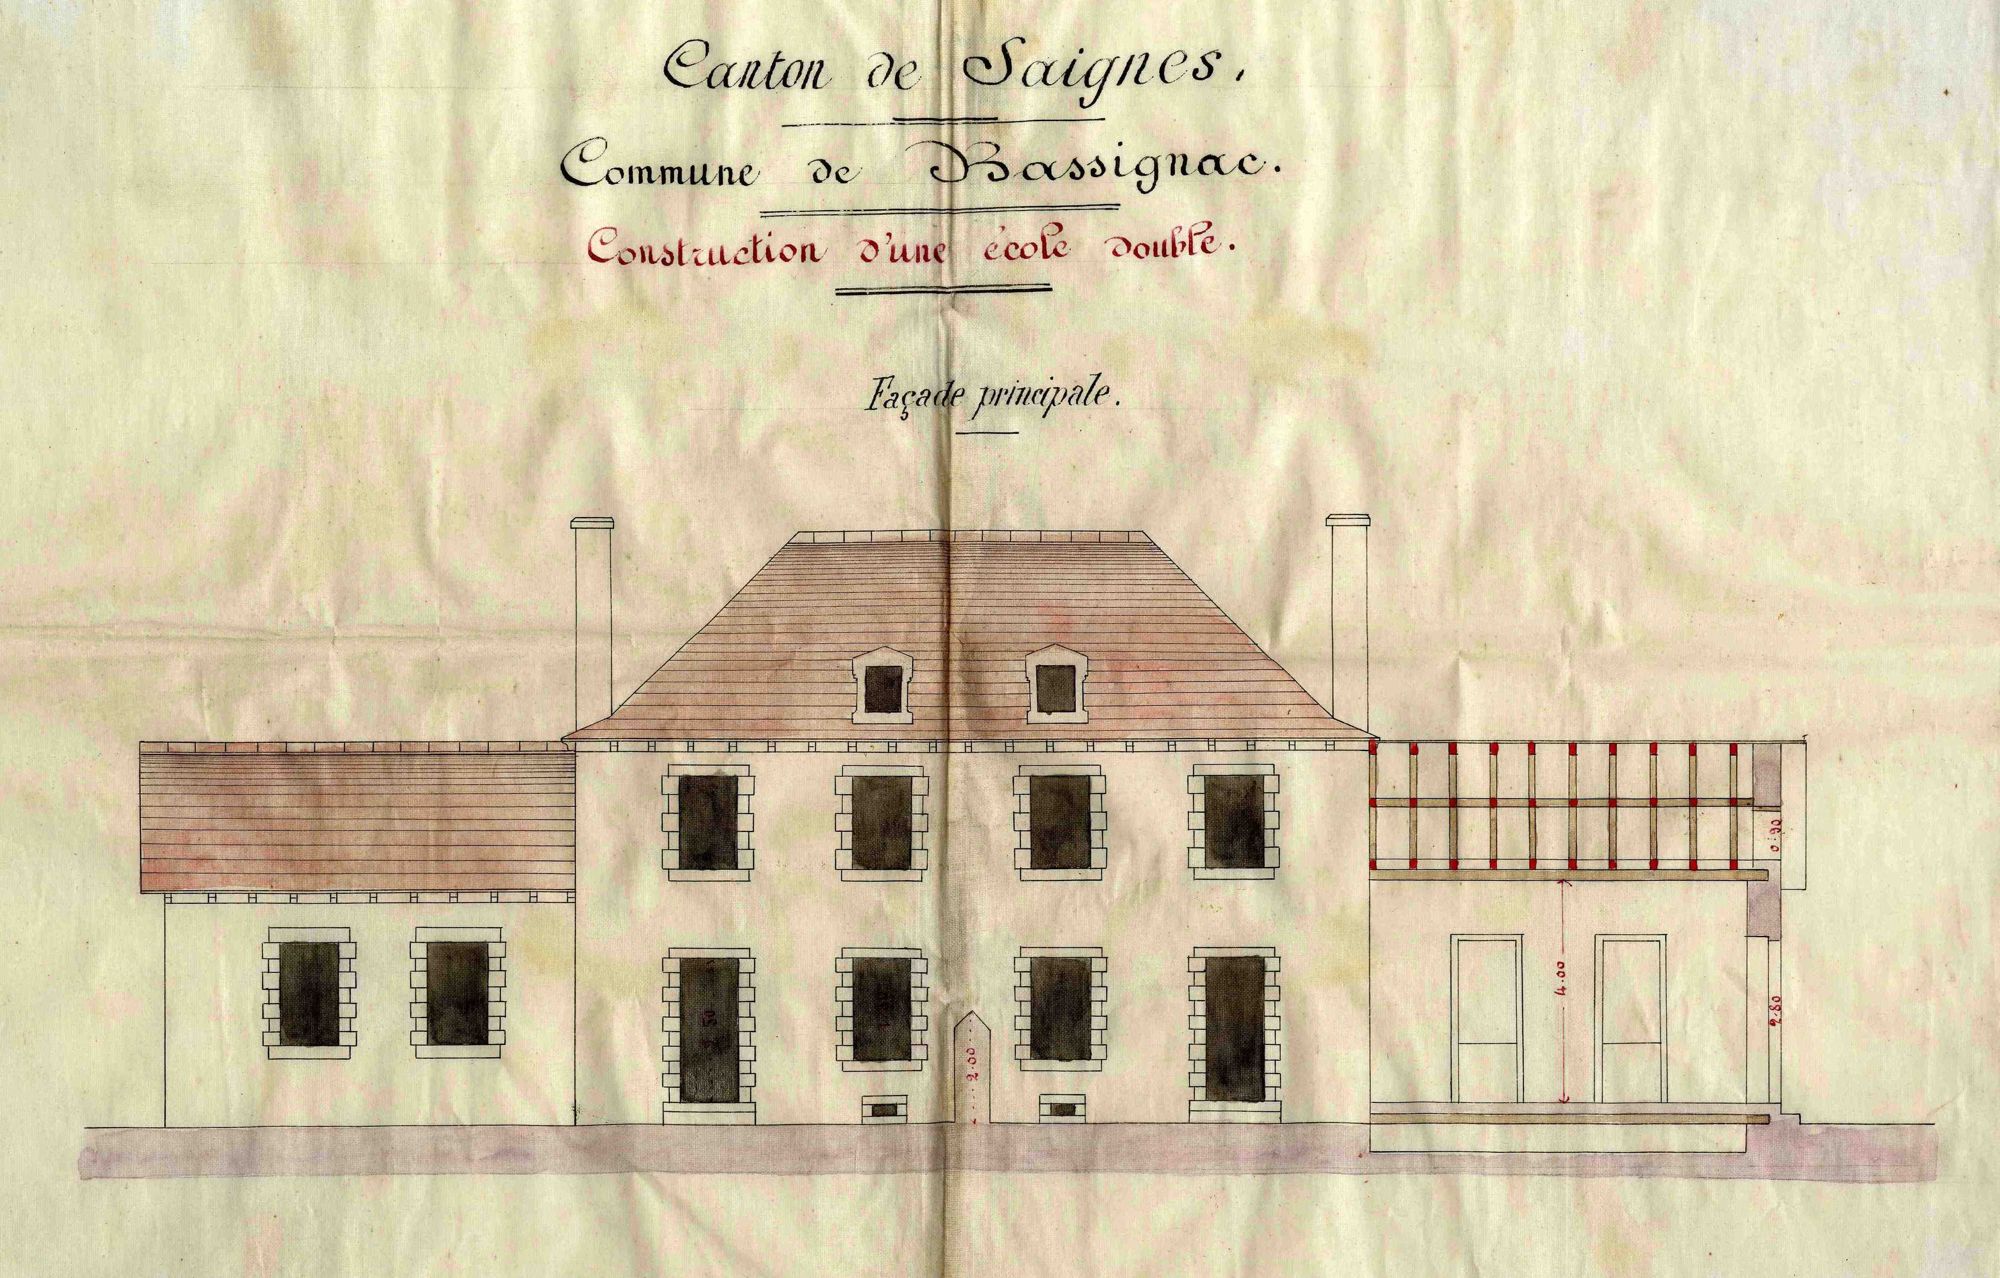 Canton de Saignes.
Commune de Bassignac.
Construction d'une école double.
Façade principale.
0.90
4.00
2.80
2.00